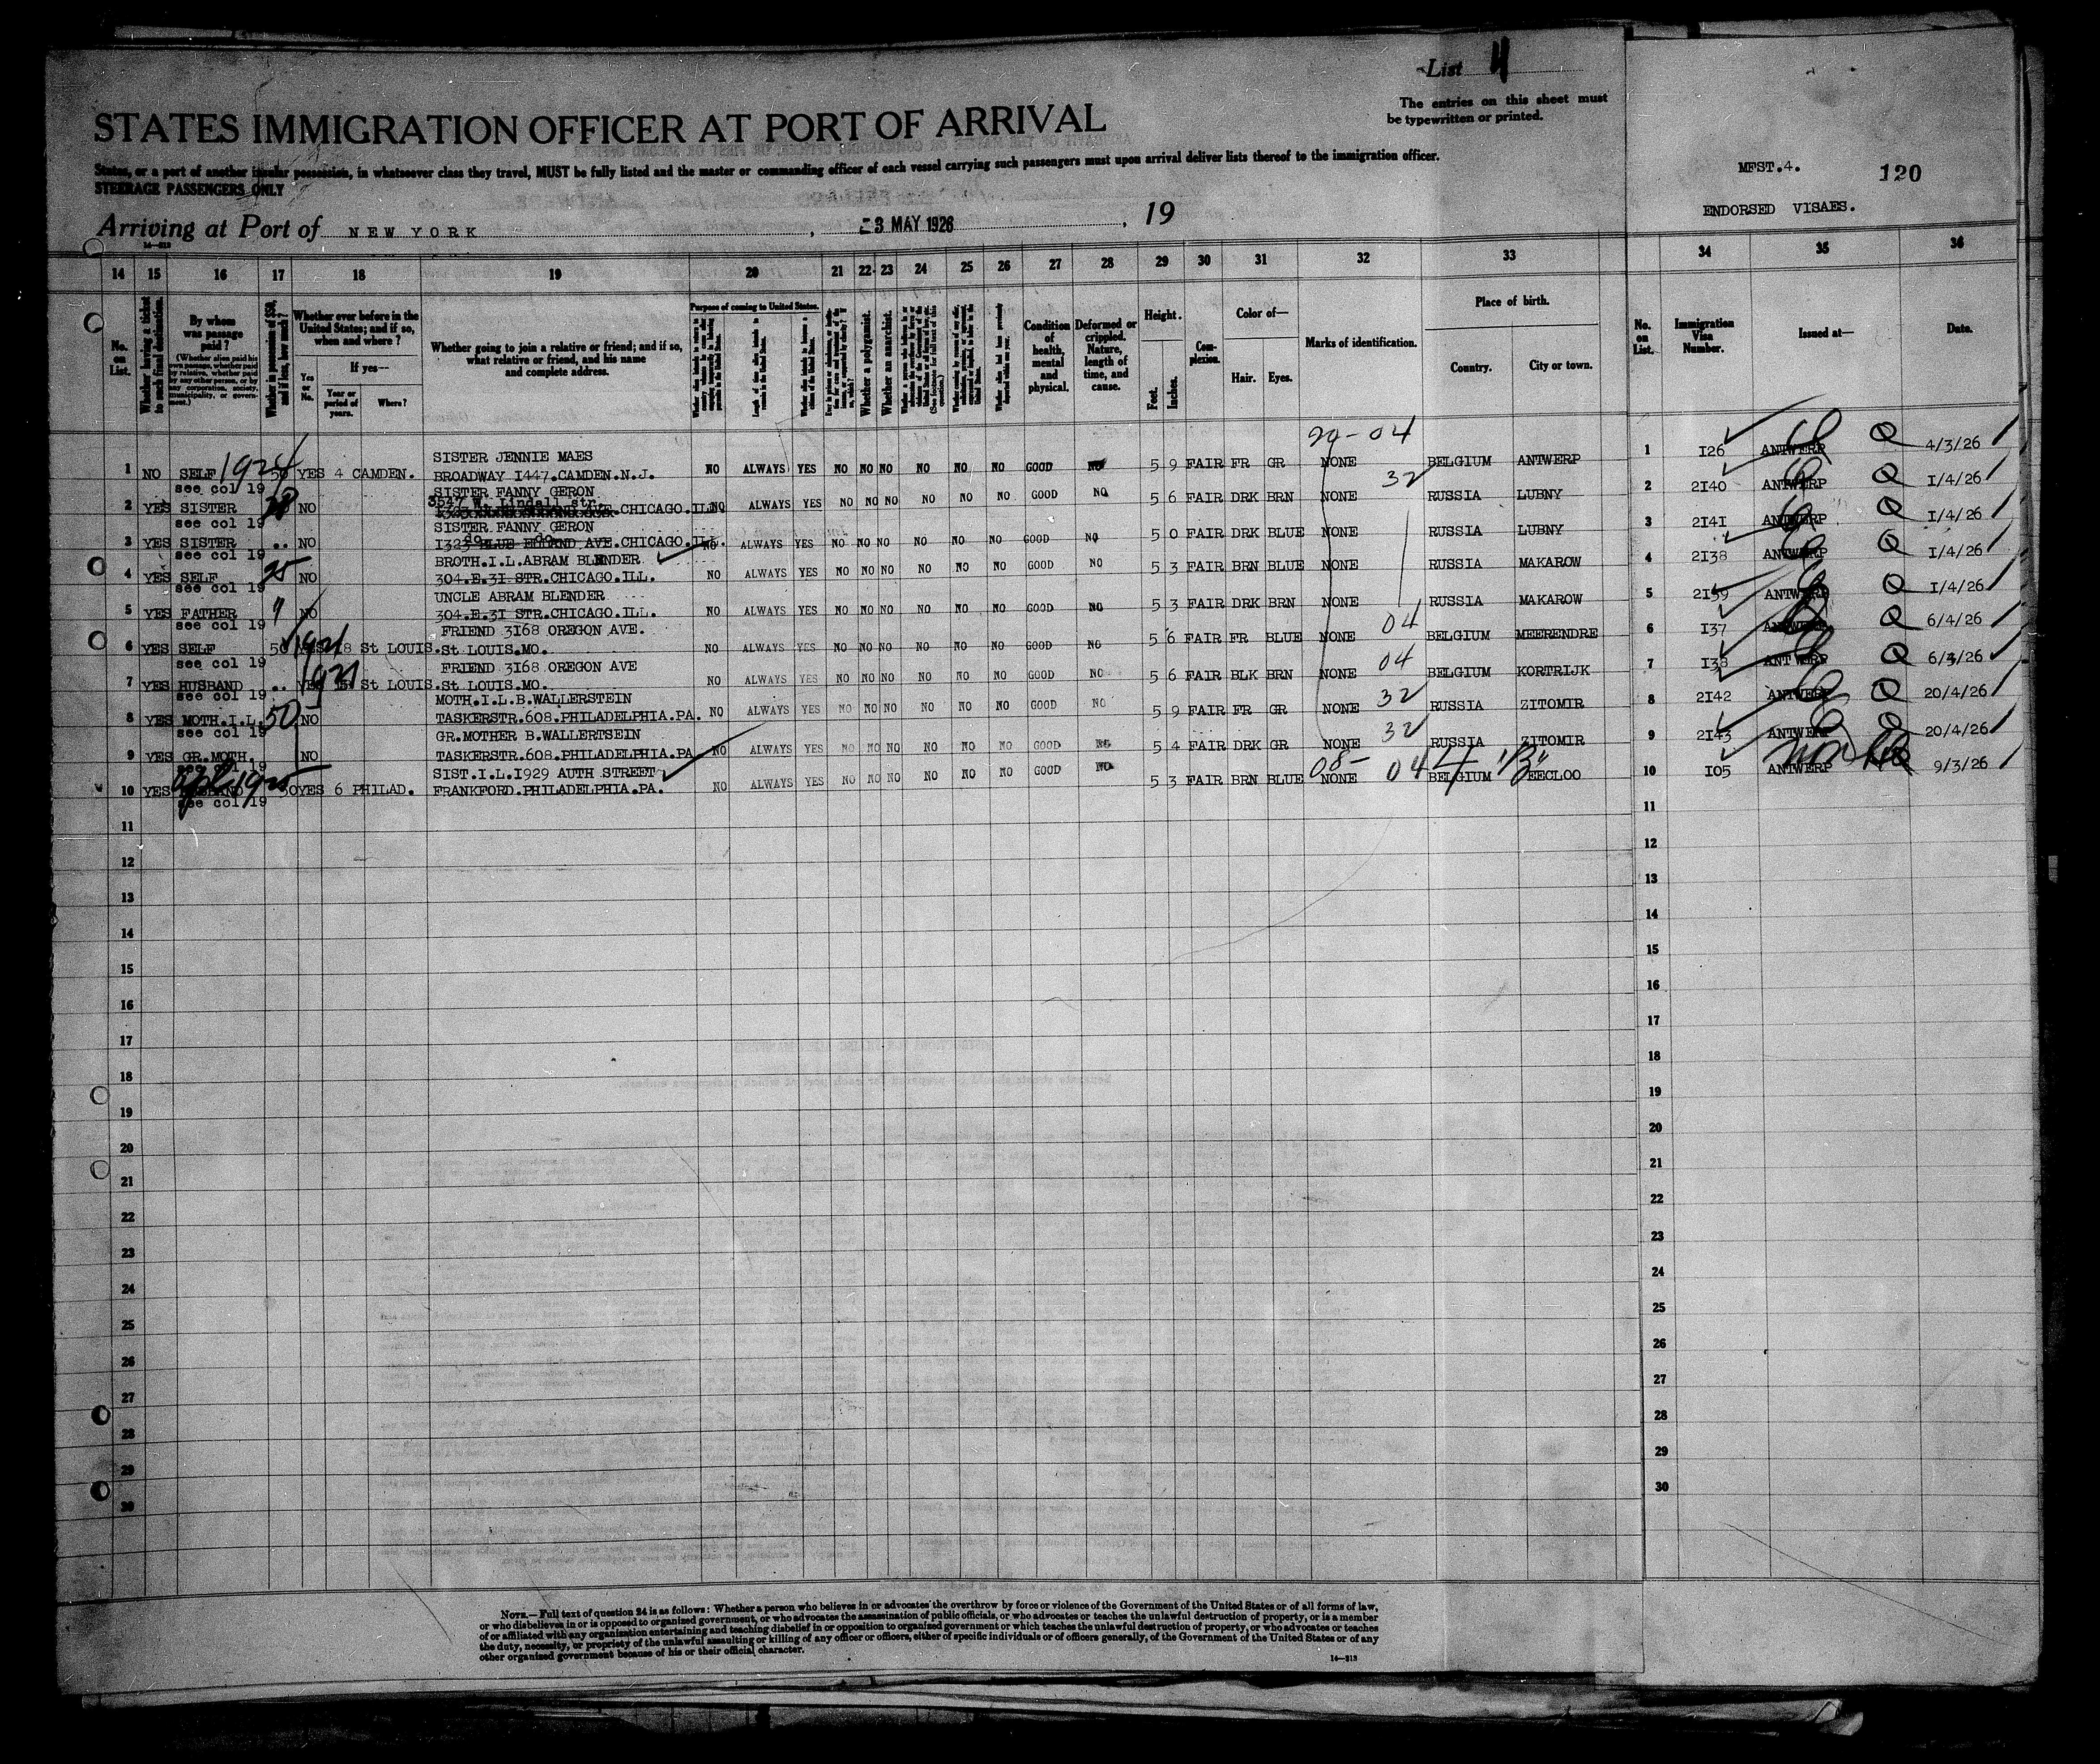 List 4
The entries on this sheet must
be typewritten or printed.
STATES IMMIGRATION OFFICER AT PORT OF ARRIVAL
States, or a port of another insular possession, in whatsoever class they travel, MUST be fully listed and the master or commanding officer of each vessel carrying such passengers must upon arrival deliver lists thereof to the immigration officer.
STEERAGE PASSENGERS ONLY
MFST.4. 120
ENDORSED VISAES.
Arriving at Port of NEW YORK , 3 MAY 1926 , 19
14 15 16 17 18 19 20 21 22 23 24 25 26 27 28 29 30 31 32 33 34 35 36
No. on List.
Whether having a ticket to such final destination.
By whom was passage paid?
(Whether alien paid his own passage, whether paid by relative, whether paid by any other person, or by any corporation, society, municipality, or government.)
Whether in possession of $50, and if less, how much?
Whether ever before in the United States; and if so, when and where?
Yes or No.
If yes—
Year or period of years.
Where?
Whether going to join a relative or friend; and if so, what relative or friend, and his name and complete address.
Purpose of coming to United States.
Whether a polygamist.
Whether an anarchist.
Condition of health, mental and physical.
Deformed or crippled. Nature, length of time, and cause.
Height.
Feet. Inches.
Complexion.
Color of—
Hair. Eyes.
Marks of identification.
Place of birth.
Country. City or town.
No. on List.
Immigration Visa Number.
Issued at—
Date.
29-04
SISTER JENNIE MAES
1 NO SELF 1924 50 YES 4 CAMDEN. BROADWAY 1447.CAMDEN.N.J. NO ALWAYS YES NO NO NO NO NO NO GOOD NO 5 9 FAIR FR GR NONE BELGIUM ANTWERP 1 I26 ANTWERP Q 4/3/26
see col 19 SISTER FANNY GERON 32
3547 W. Lindall str.
2 YES SISTER NO CHICAGO.ILL NO ALWAYS YES NO NO NO NO NO NO GOOD NO 5 6 FAIR DRK BRN NONE RUSSIA LUBNY 2 2I40 ANTWERP Q I/4/26
see col 19 SISTER FANNY GERON
do do
3 YES SISTER .. NO I323 BLUE ISLAND AVE.CHICAGO.ILL. NO ALWAYS YES NO NO NO NO NO NO GOOD NO 5 0 FAIR DRK BLUE NONE RUSSIA LUBNY 3 2I4I ANTWERP Q I/4/26
see col 19 BROTH.I.L.ABRAM BLENDER
4 YES SELF 25 NO 304.E.3I STR.CHICAGO.ILL. NO ALWAYS YES NO NO NO NO NO NO GOOD NO 5 3 FAIR BRN BLUE NONE RUSSIA MAKAROW 4 2I38 ANTWERP Q I/4/26
see col 19 UNCLE ABRAM BLENDER
5 YES FATHER " NO 304.E.3I STR.CHICAGO.ILL. NO ALWAYS YES NO NO NO NO NO NO GOOD NO 5 3 FAIR DRK BRN NONE RUSSIA MAKAROW 5 2I39 ANTWERP Q I/4/26
see col 19 FRIEND 3I68 OREGON AVE. 04
6 YES SELF 50 1921 YES 8 St LOUIS. St LOUIS.MO. NO ALWAYS YES NO NO NO NO NO NO GOOD NO 5 6 FAIR FR BLUE NONE BELGIUM MEERENDRE 6 I37 ANTWERP Q 6/4/26
see col 19 FRIEND 3I68 OREGON AVE 04
7 YES HUSBAND .. YES 1921 St LOUIS. St LOUIS.MO. NO ALWAYS YES NO NO NO NO NO NO GOOD NO 5 6 FAIR BLK BRN NONE BELGIUM KORTRIJK 7 I38 ANTWERP Q 6/4/26
see col 19 MOTH.I.L.B.WALLERSTEIN 32
8 YES MOTH.I.L. 50 NO TASKERSTR.608.PHILADELPHIA.PA. NO ALWAYS YES NO NO NO NO NO NO GOOD NO 5 9 FAIR FR GR NONE RUSSIA ZITOMIR 8 2I42 ANTWERP Q 20/4/26
see col 19 GR.MOTHER B.WALLERTSEIN 32
9 YES GR.MOTH. NO TASKERSTR.608.PHILADELPHIA.PA NO ALWAYS YES NO NO NO NO NO NO GOOD NO 5 4 FAIR DRK GR NONE RUSSIA ZITOMIR 9 2I43 ANTWERP Q 20/4/26
see col 19 SIST.I.L.I929 AUTH STREET 08- 04
10 YES 1925 50 YES 6 PHILAD. FRANKFORD.PHILADELPHIA.PA. NO ALWAYS YES NO NO NO NO NO NO GOOD NO 5 3 FAIR BRN BLUE NONE BELGIUM EECLOO 10 I05 ANTWERP Non 9/3/26
see col 19
11 11
12 12
13 13
14 14
15 15
16 16
17 17
18 18
19 19
20 20
21 21
22 22
23 23
24 24
25 25
26 26
27 27
28 28
29 29
30 30
NOTE.—Full text of question 24 is as follows: Whether a person who believes in or advocates the overthrow by force or violence of the Government of the United States or of all forms of law,
or who disbelieves in or is opposed to organized government, or who advocates the assassination of public officials, or who advocates or teaches the unlawful destruction of property, or is a member
of or affiliated with any organization entertaining and teaching disbelief in or opposition to organized government or which teaches the unlawful destruction of property, or who advocates or teaches
the duty, necessity, or propriety of the unlawful assaulting or killing of any officer or officers, either of specific individuals or of officers generally, of the Government of the United States or of any
other organized government because of his or their official character.
14—313